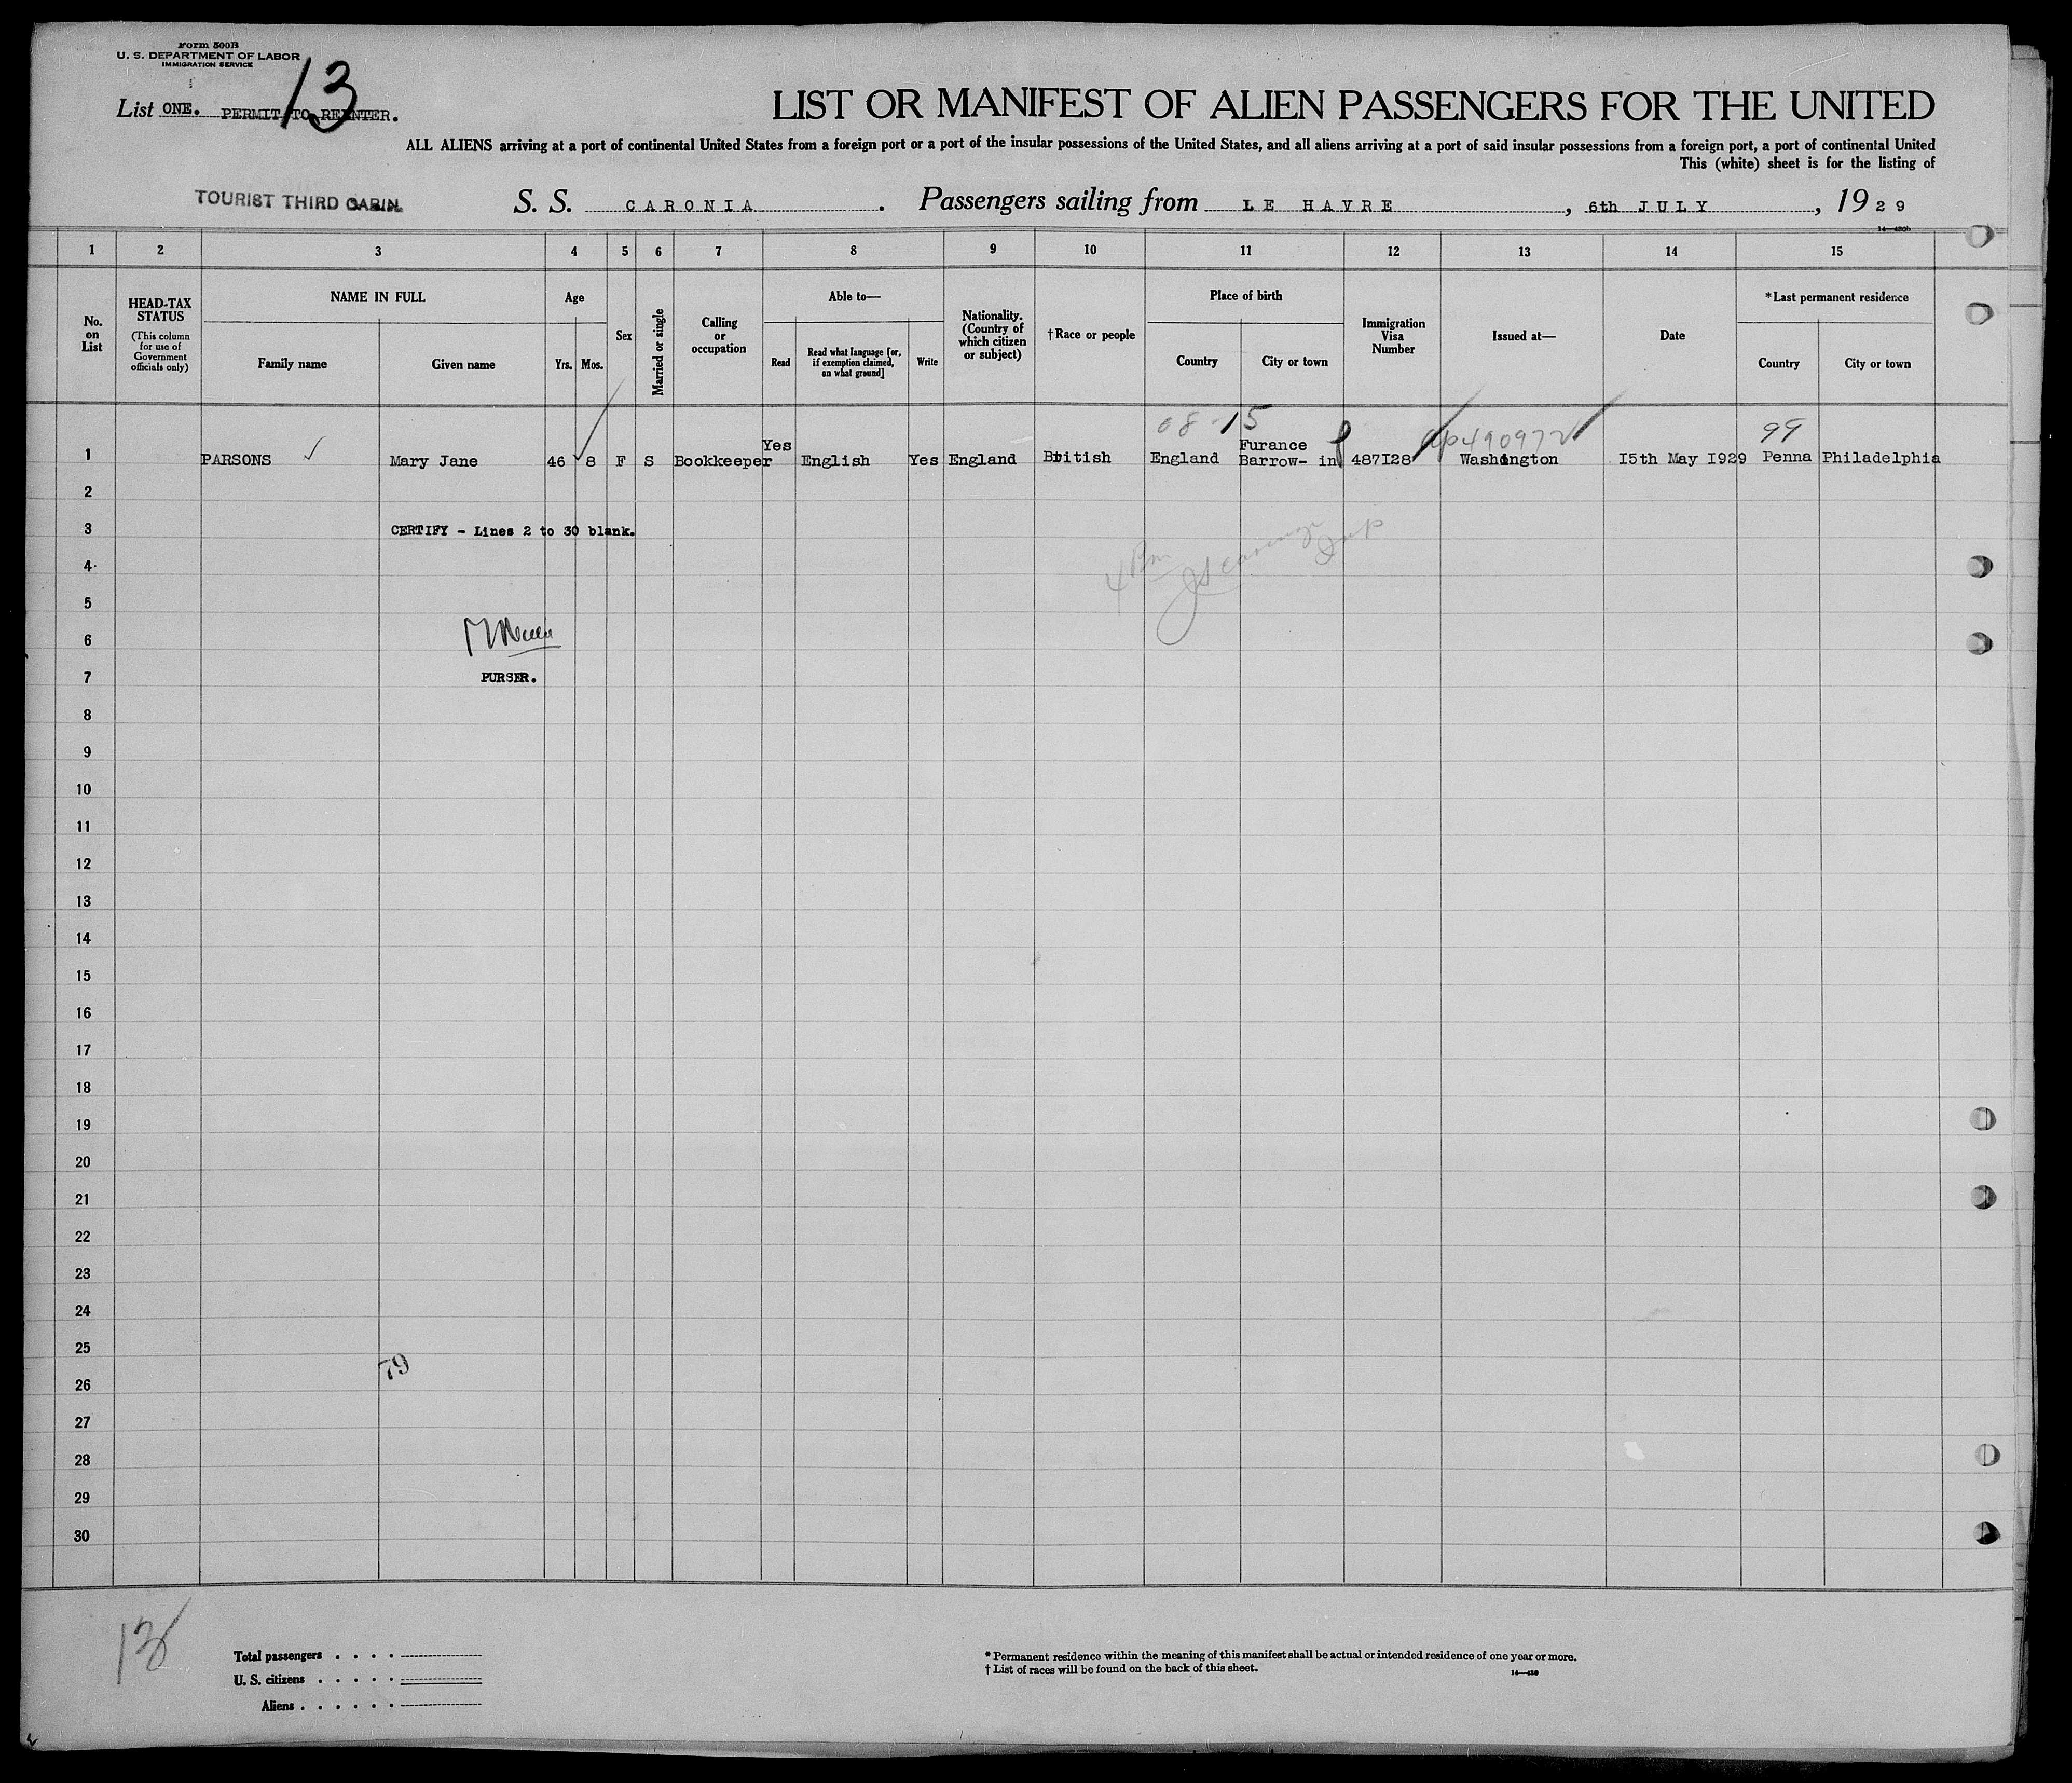 Form 500B
U. S. DEPARTMENT OF LABOR
IMMIGRATION SERVICE
13
List ONE. PERMIT TO REENTER.
LIST OR MANIFEST OF ALIEN PASSENGERS FOR THE UNITED
ALL ALIENS arriving at a port of continental United States from a foreign port or a port of the insular possessions of the United States, and all aliens arriving at a port of said insular possessions from a foreign port, a port of continental United
This (white) sheet is for the listing of
TOURIST THIRD CABIN.
S. S. CARONIA. Passengers sailing from LE HAVRE, 6th JULY, 1929
14—430b
1 2 3 4 5 6 7 8 9 10 11 12 13 14 15
No. on List
HEAD-TAX STATUS
(This column for use of Government officials only)
NAME IN FULL
Family name Given name
Age
Yrs. Mos.
Sex
Married or single
Calling or occupation
Able to—
Read
Read what language [or, if exemption claimed, on what ground]
Write
Nationality. (Country of which citizen or subject)
†Race or people
Place of birth
Country City or town
Immigration Visa Number
Issued at—
Date
*Last permanent residence
Country City or town
08-15 490972 99
Yes Furance
1 PARSONS Mary Jane 46 8 F S Bookkeeper English Yes England British England Barrow- in 487I28 Washington I5th May I929 Penna Philadelphia
2
3 CERTIFY - Lines 2 to 30 blank.
4
5
6
7 PURSER.
8
9
10
11
12
13
14
15
16
17
18
19
20
21
22
23
24
25
79
26
27
28
29
30
13
Total passengers
U. S. citizens
Aliens
* Permanent residence within the meaning of this manifest shall be actual or intended residence of one year or more.
† List of races will be found on the back of this sheet.
14—430